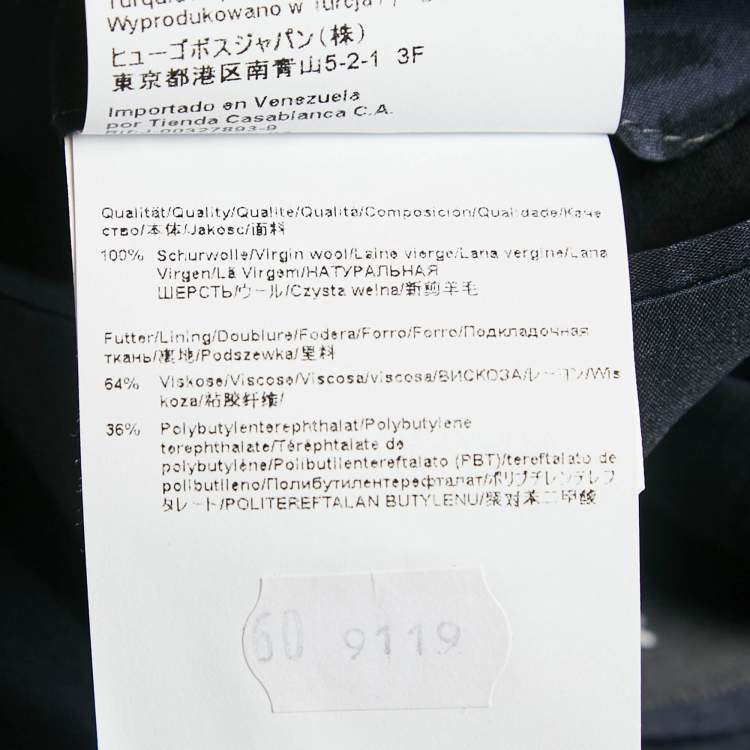 Wyprodukowano w Turcja
ヒューゴボスジャパン(株)
東京都港区南青山5-2-1 3F
Importado en Venezuela
por Tienda Casablanca C.A.
Rif: J-00327893-9
Qualität/Quality/Qualite/Qualità/Composicion/Qualidade/Каче
ство/本体/Jakosc/面料
100% Schurwolle/Virgin wool/Laine vierge/Lana vergine/Lana
Virgen/Lã Virgem/НАТУРАЛЬНАЯ
ШЕРСТЬ/ウール/Czysta wełna/新剪羊毛
Futter/Lining/Doublure/Fodera/Forro/Forro/Подкладочная
ткань/裏地/Podszewka/里料
64% Viskose/Viscose/Viscosa/viscosa/ВИСКОЗА/レーヨン/Wis
koza/粘胶纤维/
36% Polybutylenterephthalat/Polybutylene
terephthalate/Téréphtalate de
polybutylène/Polibutilentereftalato (PBT)/tereftalato de
polibutileno/Полибутилентерефталат/ポリブチレンテレフ
タレート/POLITEREFTALAN BUTYLENU/聚对苯二甲酸
60 9119